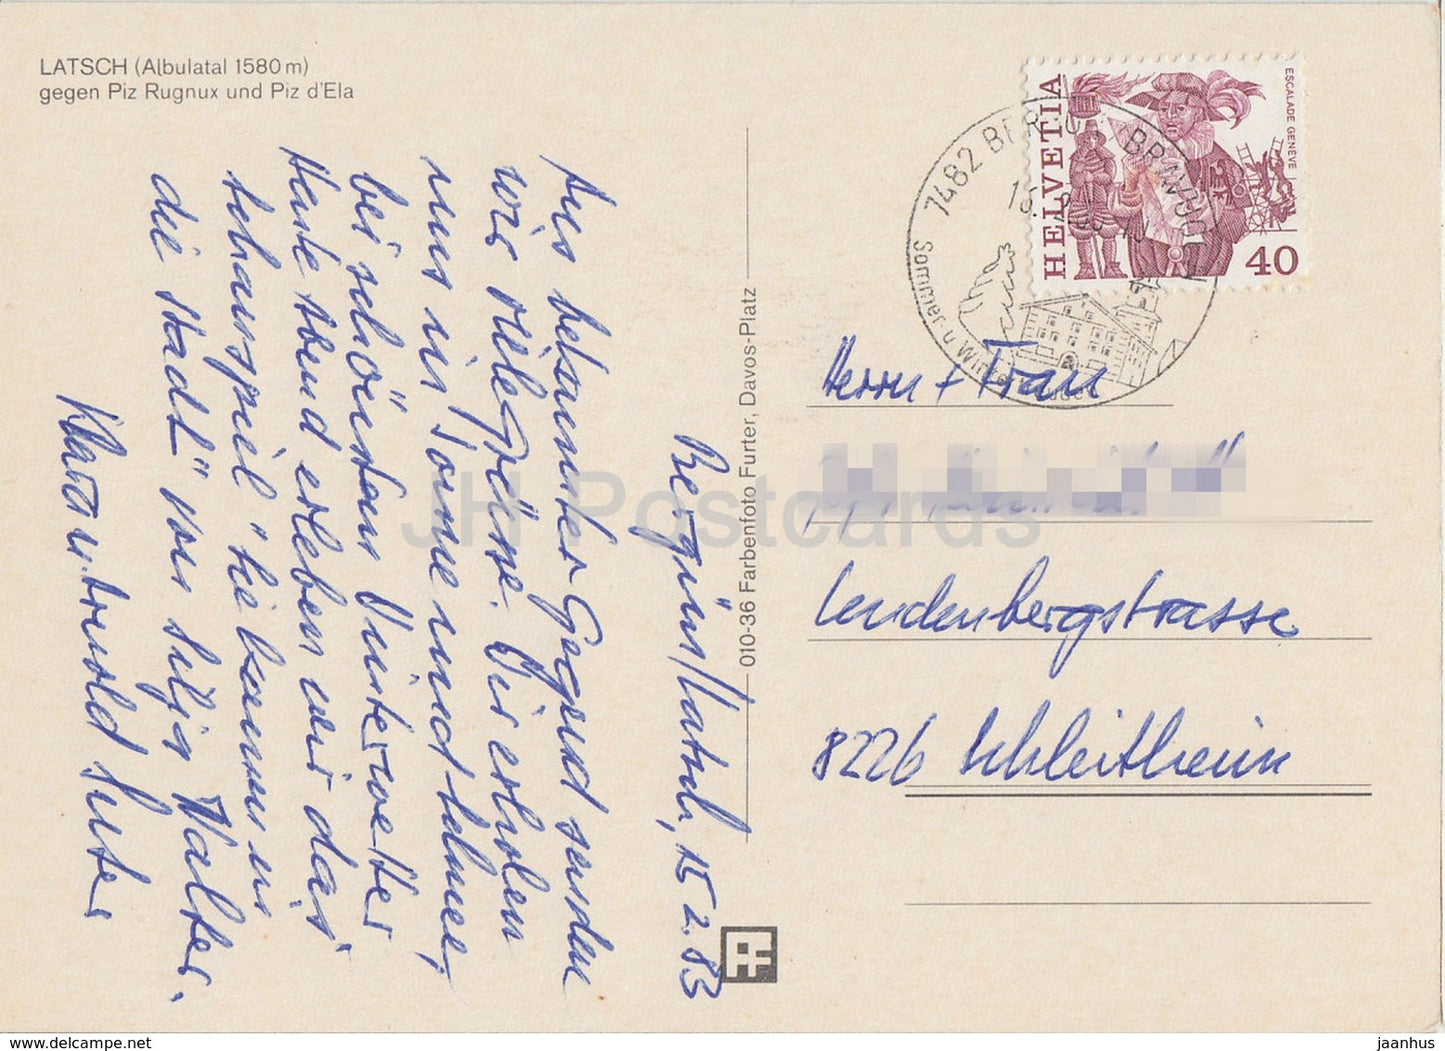 LATSCH (Albulatal 1580 m)
gegen Piz Rugnux und Piz d'Ela
Bergün/Latsch, 15.2.83
Aus bekannter Gegend senden
wir viele Grüsse. Wir erholen
uns in Sonne und Schnee,
bei schönstem Winterwetter
Heute Abend erleben wir das
Schauspiel "sie kamen in
die Stadt" von Silja Walter.
Klara u. Arnold Suter
010-36 Farbenfoto Furter, Davos-Platz
HELVETIA
ESCALADE GENÈVE
40
7482 BERGÜN/BRAVUOGN
Sommer u. Winter
Herrn + Frau
Lendenbergstrasse
8226 Schleitheim
JH Postcards
www.delcampe.net
jaanhus